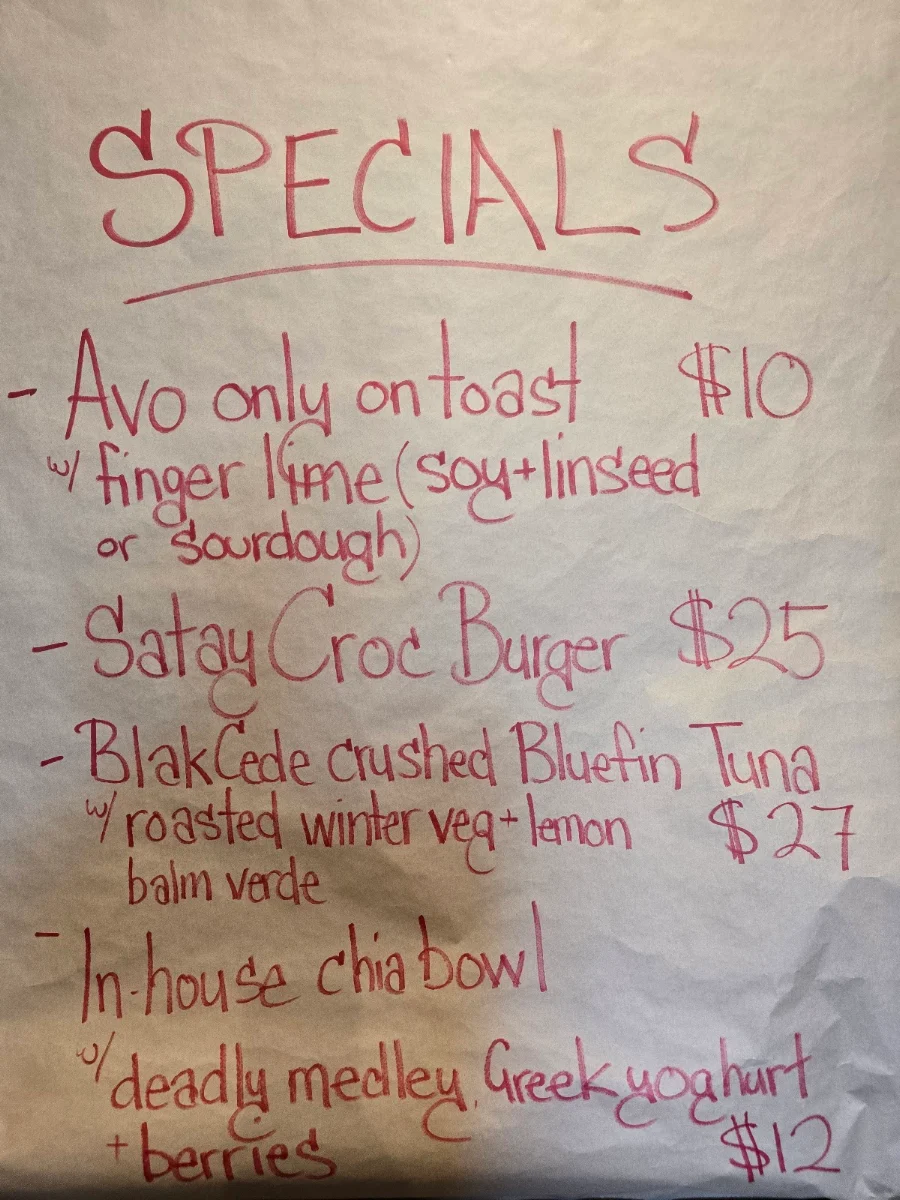 SPECIALS
- Avo only on toast $10
w/ finger lime (soy+linseed
or sourdough)
- Satay Croc Burger $25
- BlakCede crushed Bluefin Tuna
w/ roasted winter veg + lemon $27
balm verde
- In-house chia bowl
w/ deadly medley, Greek yoghurt
+ berries $12